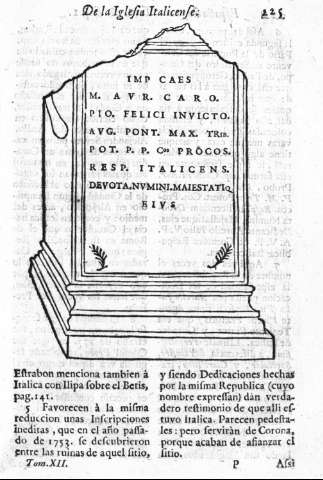 De la Iglesia Italicense. 225
IMP CAES
M. AVR. CARO.
PIO. FELICI INVICTO.
AVG. PONT. MAX. TRIB.
POT. P. P. Cos PRÔCOS.
RESP. ITALICENS.
DEVOTA. NVMINI. MAIESTATIQ
EIVS
Estrabon menciona tambien à
Italica con Ilipa sobre el Betis,
pag. 141.
5 Favorecen à la misma
reduccion unas Inscripciones
ineditas, que en el año passa-
do de 1753. se descubrieron
entre las ruinas de aquel sitio,
Tom. XII.
y siendo Dedicaciones hechas
por la misma Republica (cuyo
nombre expressan) dan verda-
dero testimonio de que alli es-
tuvo Italica. Parecen pedesta-
les: pero serviràn de Corona,
porque acaban de afianzar el
sitio.
P Assi